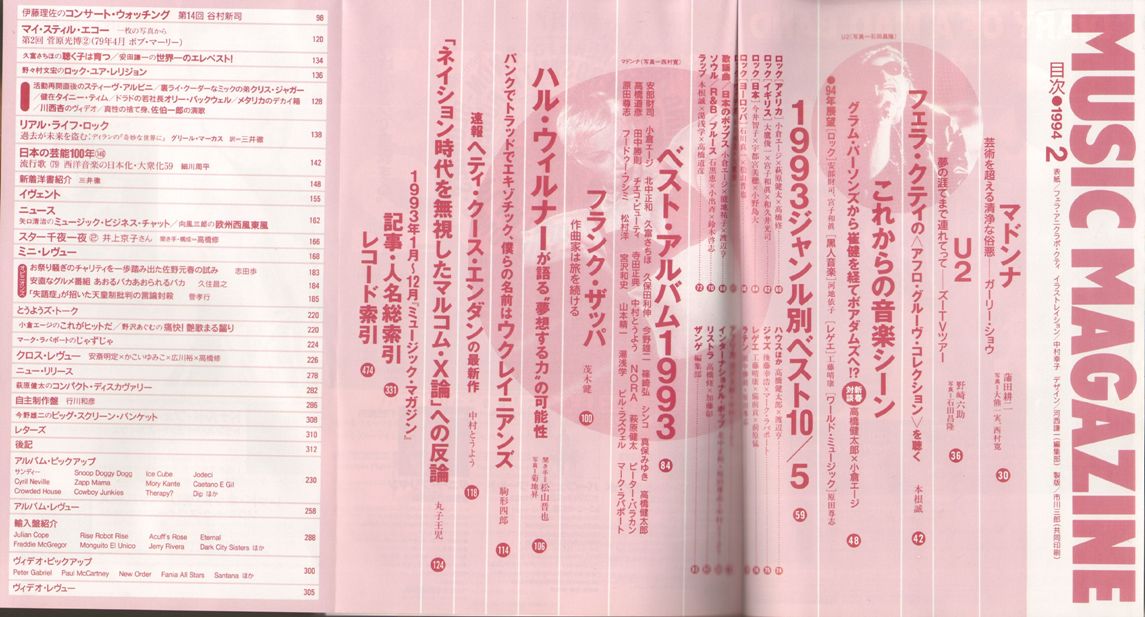 MUSIC MAGAZINE
目次●1994 2
表紙/フェラ・アニクラポ・クティ イラストレイション・中村幸子 デザイン/河西謙一(編集部) 製版/市川三郎(共同印刷)
マドンナ
芸術を超える清浄な俗悪——ガーリー・ショウ
蒲田耕二
写真=大熊一実、西村寛
30
U2
夢の涯てまで連れてって——ズーTVツアー
野崎六助
写真=石田昌隆
36
フェラ・クティの〈アフロ・グルーヴ・コレクション〉を聴く
本根誠
42
これからの音楽シーン
グラム・パーソンズから雀鬼を経てボアダムズへ!?
新春対談
高橋健太郎×小倉エージ
48
●94年展望
[ロック]安部財司、宮子和眞
[黒人音楽]河地依子
[レゲエ]工藤晴康
[ワールド・ミュージック]原田尊志
U2(写真=石田昌隆)
1993ジャンル別ベスト10/5
59
ロック[アメリカ]小倉エージ×萩原健太×高橋修
ロック[イギリス]大鷹俊一×宮子和眞×和久井光司
ロック[日本]今井智子×宇都宮美穂×小野島大
ロック[ヨーロッパ]石川真一×松山晋也
歌謡曲/日本のポップス
ソウル/R&B/ブルース
ラップ 本根誠×湯浅学×高橋道彦
ハウスほか 高橋健太郎×渡辺亨
ジャズ 後藤幸浩×マーク・ラパポート
レゲエ
ラテン
インターナショナル・ポップ
リストラ 高橋修×加藤彰
ザンゲ 編集部
マドンナ(写真=西村寛)
ベスト・アルバム1993
84
安部財司 小倉エージ 北中正和 久富さちほ 久保田利伸 今野雄二 篠崎弘 シンコ 真保みゆき 高橋健太郎
高橋道彦 田中勝則 チエコ・ビューティ 寺田正典 中村とうよう NORA 萩原健太 ピーター・バラカン
原田尊志 フードゥー・フシミ 松村洋 宮沢和史 山本精一 湯浅学 ビル・ラズウェル マーク・ラパポート
フランク・ザッパ
作曲家は旅を続ける
茂木健
100
ハル・ウィルナーが語る“夢想する力”の可能性
聞き手=松山晋也
写真=菊地昇
106
パンクでトラッドでエキゾチック、僕らの名前はウクレイニアンズ
駒形四郎
114
速報 ヘティ・クース・エンダンの最新作
中村とうよう
118
「ネイション時代を無視したマルコム・X論」への反論
丸子王児
124
1993年1月〜12月『ミュージック・マガジン』
記事・人名総索引
331
レコード索引
474
伊藤理佐のコンサート・ウォッチング 第14回 谷村新司 98
マイ・スティル・エコー 一枚の写真から
第2回 菅原光博②(79年4月 ボブ・マーリー) 120
久富さちほの聴く子は育つ/安田謙一の世界一のエレベスト! 134
野々村文宏のロック・ユア・レリジョン 136
活動再開直後のスティーヴ・アルビニ/裏ライ・クーダーなミックの弟クリス・ジャガー
/健在タイニー・ティム/ドラドの若社長オリー・バックウェル/メタリカのデカイ箱
/川西杏のヴィデオ/真性の捨て身、佐伯一郎の演歌 128
リアル・ライフ・ロック
過去が未来を盗む:ディランの『奇妙な世界に』 グリール・マーカス 訳=三井徹 138
日本の芸能100年 146
流行歌(79) 西洋音楽の日本化・大衆化59 細川周平 142
新着洋書紹介 三井徹 148
イヴェント 155
ニュース
矢口清治のミュージック・ビジネス・チャット/向風三郎の欧州西風東風 162
スター千夜一夜 ㉗ 井上京子さん 聞き手・構成=高橋修 166
ミニ・レヴュー 168
お祭り騒ぎのチャリティを一歩踏み出た佐野元春の試み 志田歩 183
安直なグルメ番組 あおるバカあおられるバカ 久住昌之 184
「失語症」が招いた天皇制批判の言論封殺 菅孝行 185
とうようズ・トーク 220
小倉エージのこれがヒットだ/野沢あぐむの痛快!艶歌まる齧り 220
マーク・ラパポートのじゃずじゃ 224
クロス・レヴュー 安斎明定×かこいゆみこ×広川裕×高橋修 226
ニュー・リリース 278
萩原健太のコンパクト・ディスカヴァリー 282
自主制作盤 行川和彦 286
今野雄二のビッグ・スクリーン・バンケット 308
レターズ 310
後記 312
アルバム・ピックアップ 230
サンディー Snoop Doggy Dogg Ice Cube Jodeci
Cyril Neville Zapp Mama Mory Kante Caetano E Gil
Crowded House Cowboy Junkies Therapy? Dip ほか
アルバム・レヴュー 258
輸入盤紹介 288
Julian Cope Rise Robot Rise Acuff's Rose Eternal
Freddie McGregor Monguito El Unico Jerry Rivera Dark City Sisters ほか
ヴィデオ・ピックアップ 300
Peter Gabriel Paul McCartney New Order Fania All Stars Santana ほか
ヴィデオ・レヴュー 305